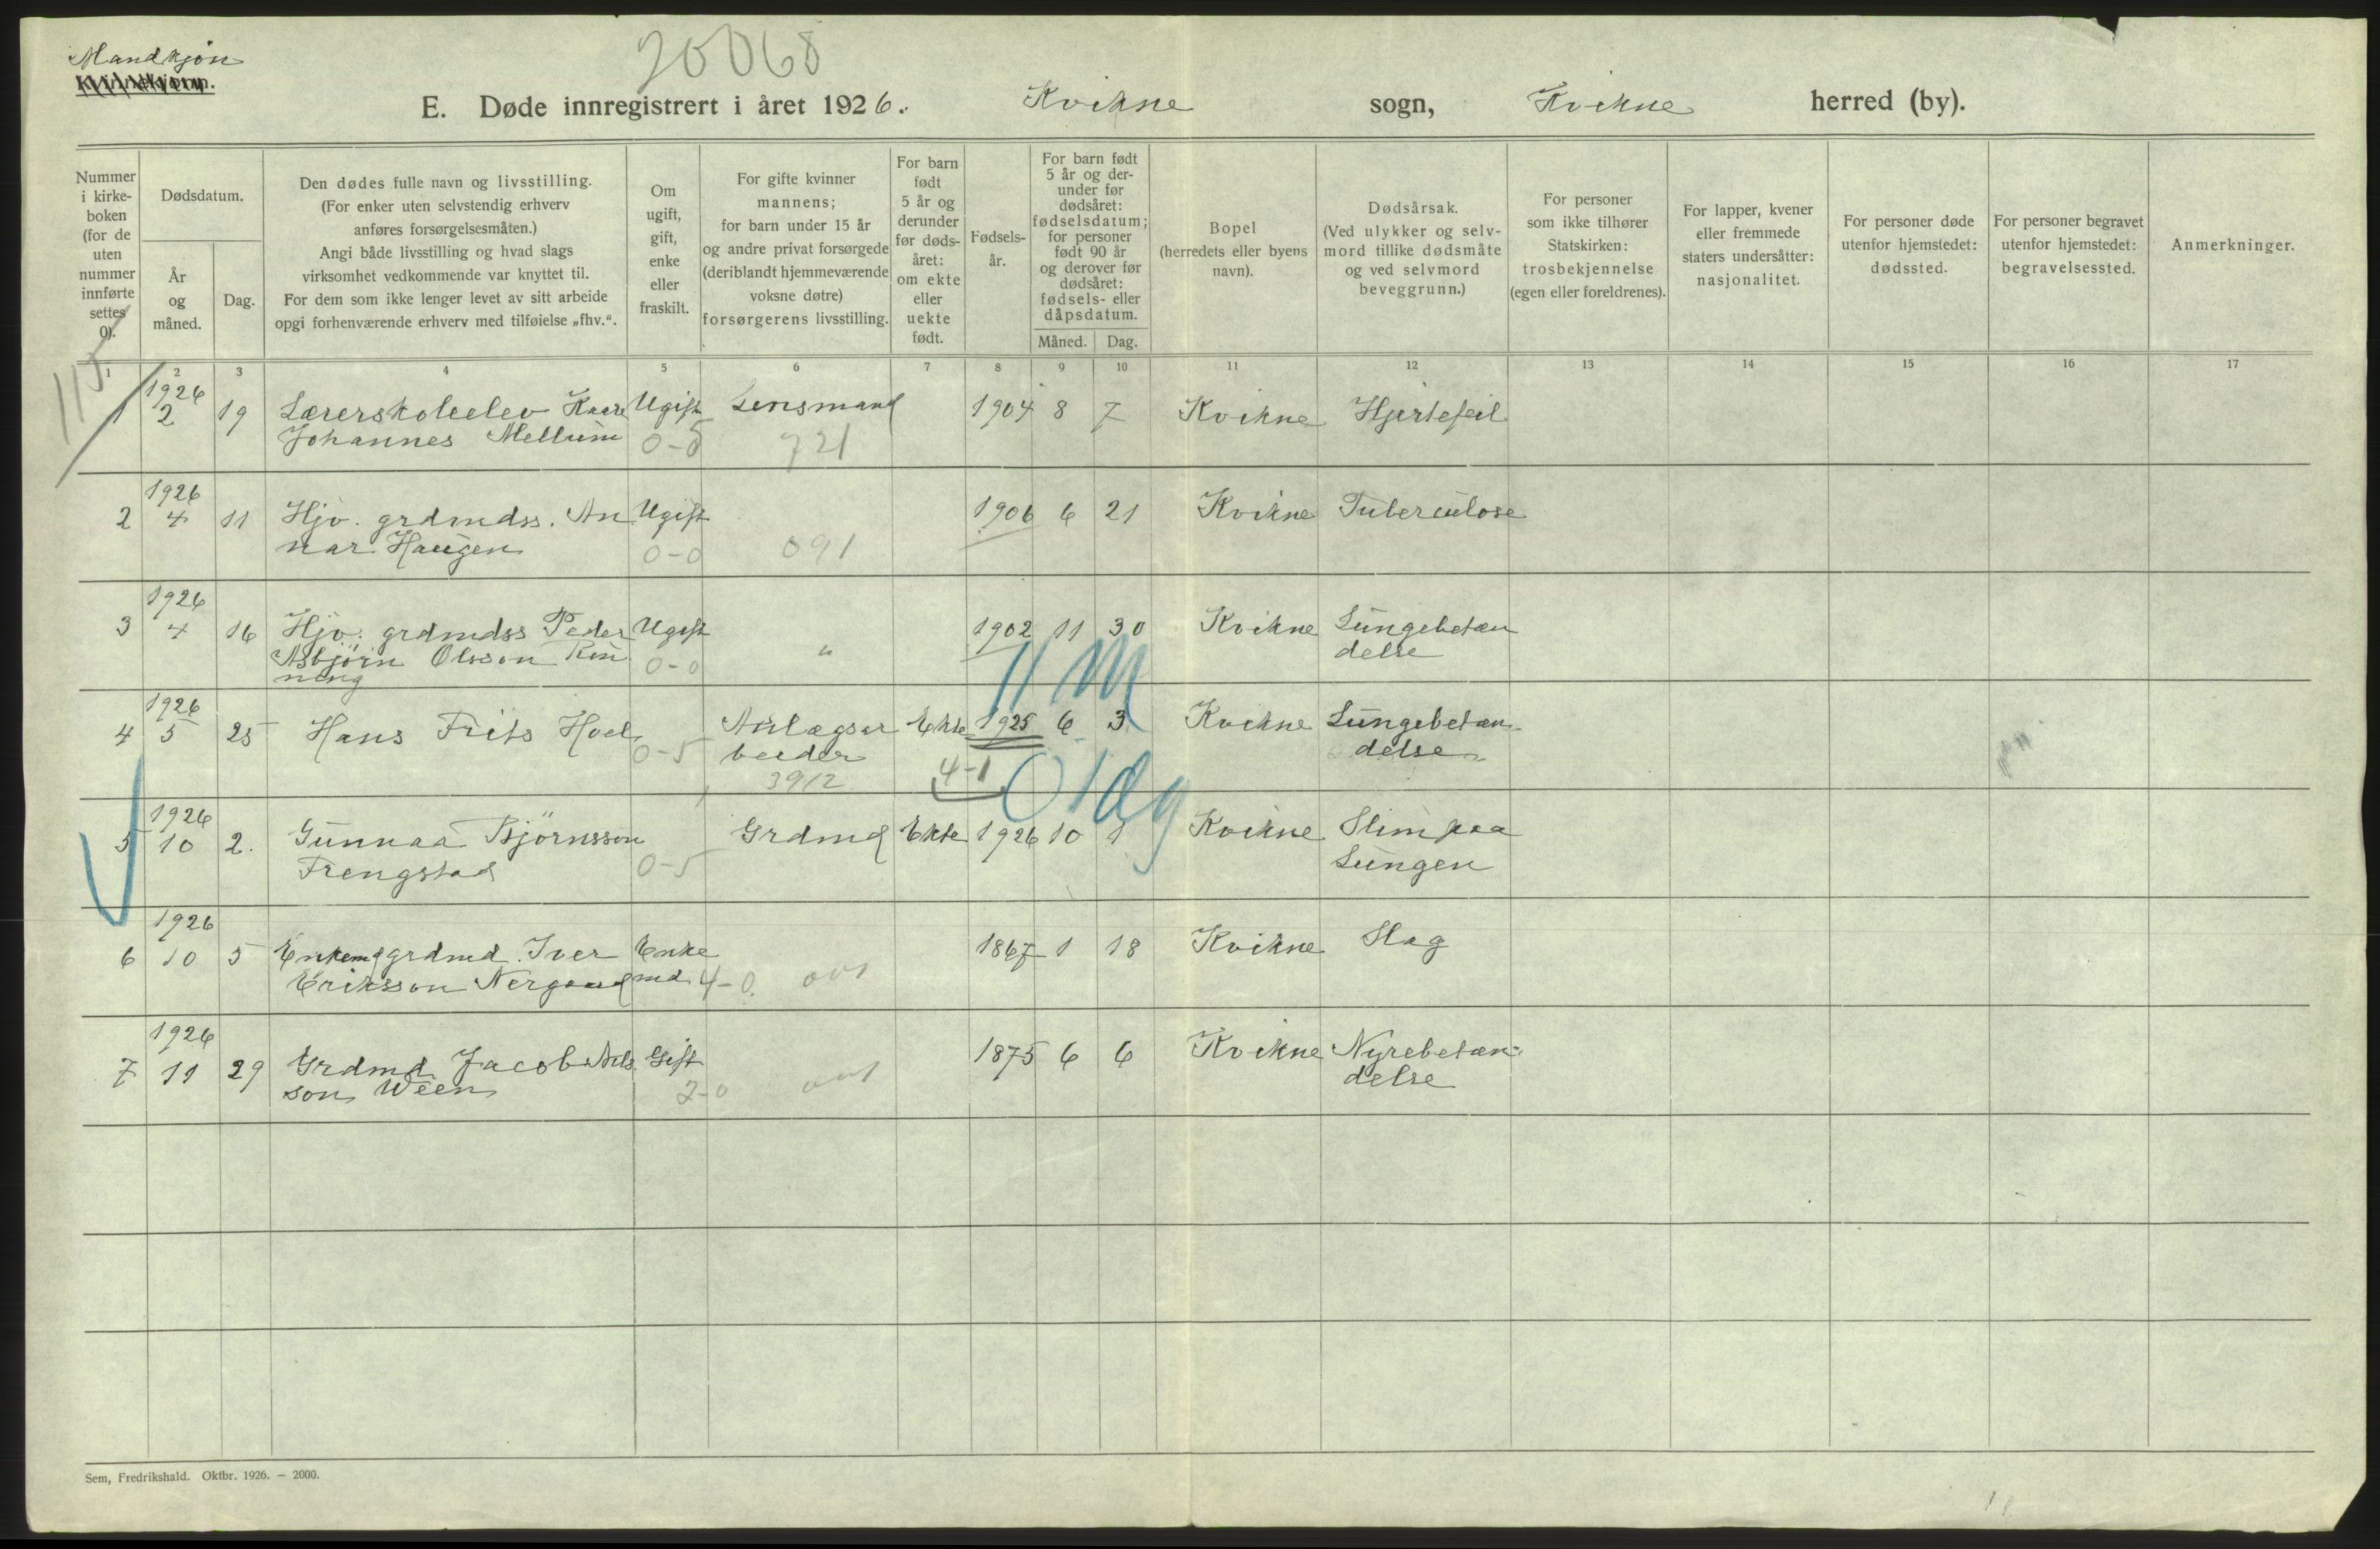 Mandkjøn
20068
Kvinnekjønn.
E. Døde innregistrert i året 1926. Kvikne sogn, Kvikne herred (by).
Nummer
i kirke-
boken
(for de
uten
nummer
innførte
settes
0).
Dødsdatum.
År
og
måned.
Dag.
Den dødes fulle navn og livsstilling.
(For enker uten selvstendig erhverv
anføres forsørgelsesmåten.)
Angi både livsstilling og hvad slags
virksomhet vedkommende var knyttet til.
For dem som ikke lenger levet av sitt arbeide
opgi forhenværende erhverv med tilføielse „fhv.“.
Om
ugift,
gift,
enke
eller
fraskilt.
For gifte kvinner
mannens;
for barn under 15 år
og andre privat forsørgede
(deriblandt hjemmeværende
voksne døtre)
forsørgerens livsstilling.
For barn
født
5 år og
derunder
før døds-
året:
om ekte
eller
uekte
født.
Fødsels-
år.
For barn født
5 år og der-
under før
dødsåret:
fødselsdatum;
for personer
født 90 år
og derover før
dødsåret:
fødsels- eller
dåpsdatum.
Måned. Dag.
Bopel
(herredets eller byens
navn).
Dødsårsak.
(Ved ulykker og selv-
mord tillike dødsmåte
og ved selvmord
beveggrunn.)
For personer
som ikke tilhører
Statskirken:
trosbekjennelse
(egen eller foreldrenes).
For lapper, kvener
eller fremmede
staters undersåtter:
nasjonalitet.
For personer døde
utenfor hjemstedet:
dødssted.
For personer begravet
utenfor hjemstedet:
begravelsessted.
Anmerkninger.
1 2 3 4 5 6 7 8 9 10 11 12 13 14 15 16 17
115
1926
1 2 19 Lærerskoleelev Kaare Ugift Lensmand 1904 8 7 Kvikne Hjertefeil
Johannes Mellum 0-5 721
1926
2 4 11 Hjv. grdmdss. An Ugift 1906 6 21 Kvikne Tuberculose
nar Haugen 0-0 091
1926
3 4 16 Hjv. grdmdss Peder Ugift 1902 11 30 Kvikne Lungebetæn
Asbjørn Olsson Røn 0-0 " delse
ning
11 M
1926
4 5 25 Hans Frits Hoel Anlægsar Ekte 1925 6 3 Kvikne Lungebetæn
0-5 beider delse
3912 4-1
0 1dg
1926
5 10 2. Gunnaa Bjørnsson Grdmd Ekte 1926 10 1 Kvikne Slim paa
Frengstad 0-5 Lungen
1926
6 10 5 Enkemd grdmd. Iver Enke 1867 1 18 Kvikne Slag
Eriksson Nergaard md. 4-0.
1926
7 11 29 Grdmd Jacob Nils. Gift 1875 6 6 Kvikne Nyrebetæn-
son Wéen 2-0 delse
Sem, Fredrikshald. Oktbr. 1926. – 2000.